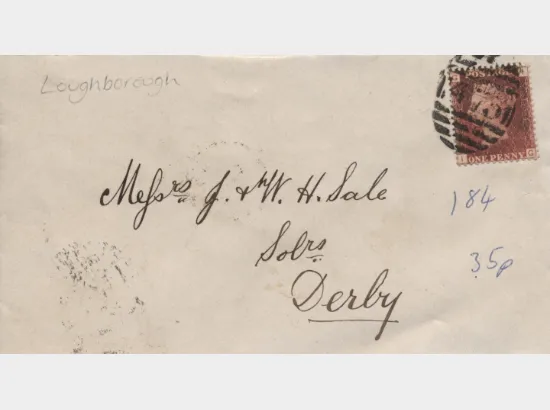 Loughborough
ONE PENNY
Messrs J. & W. H. Sale
184
Solrs
35p
Derby